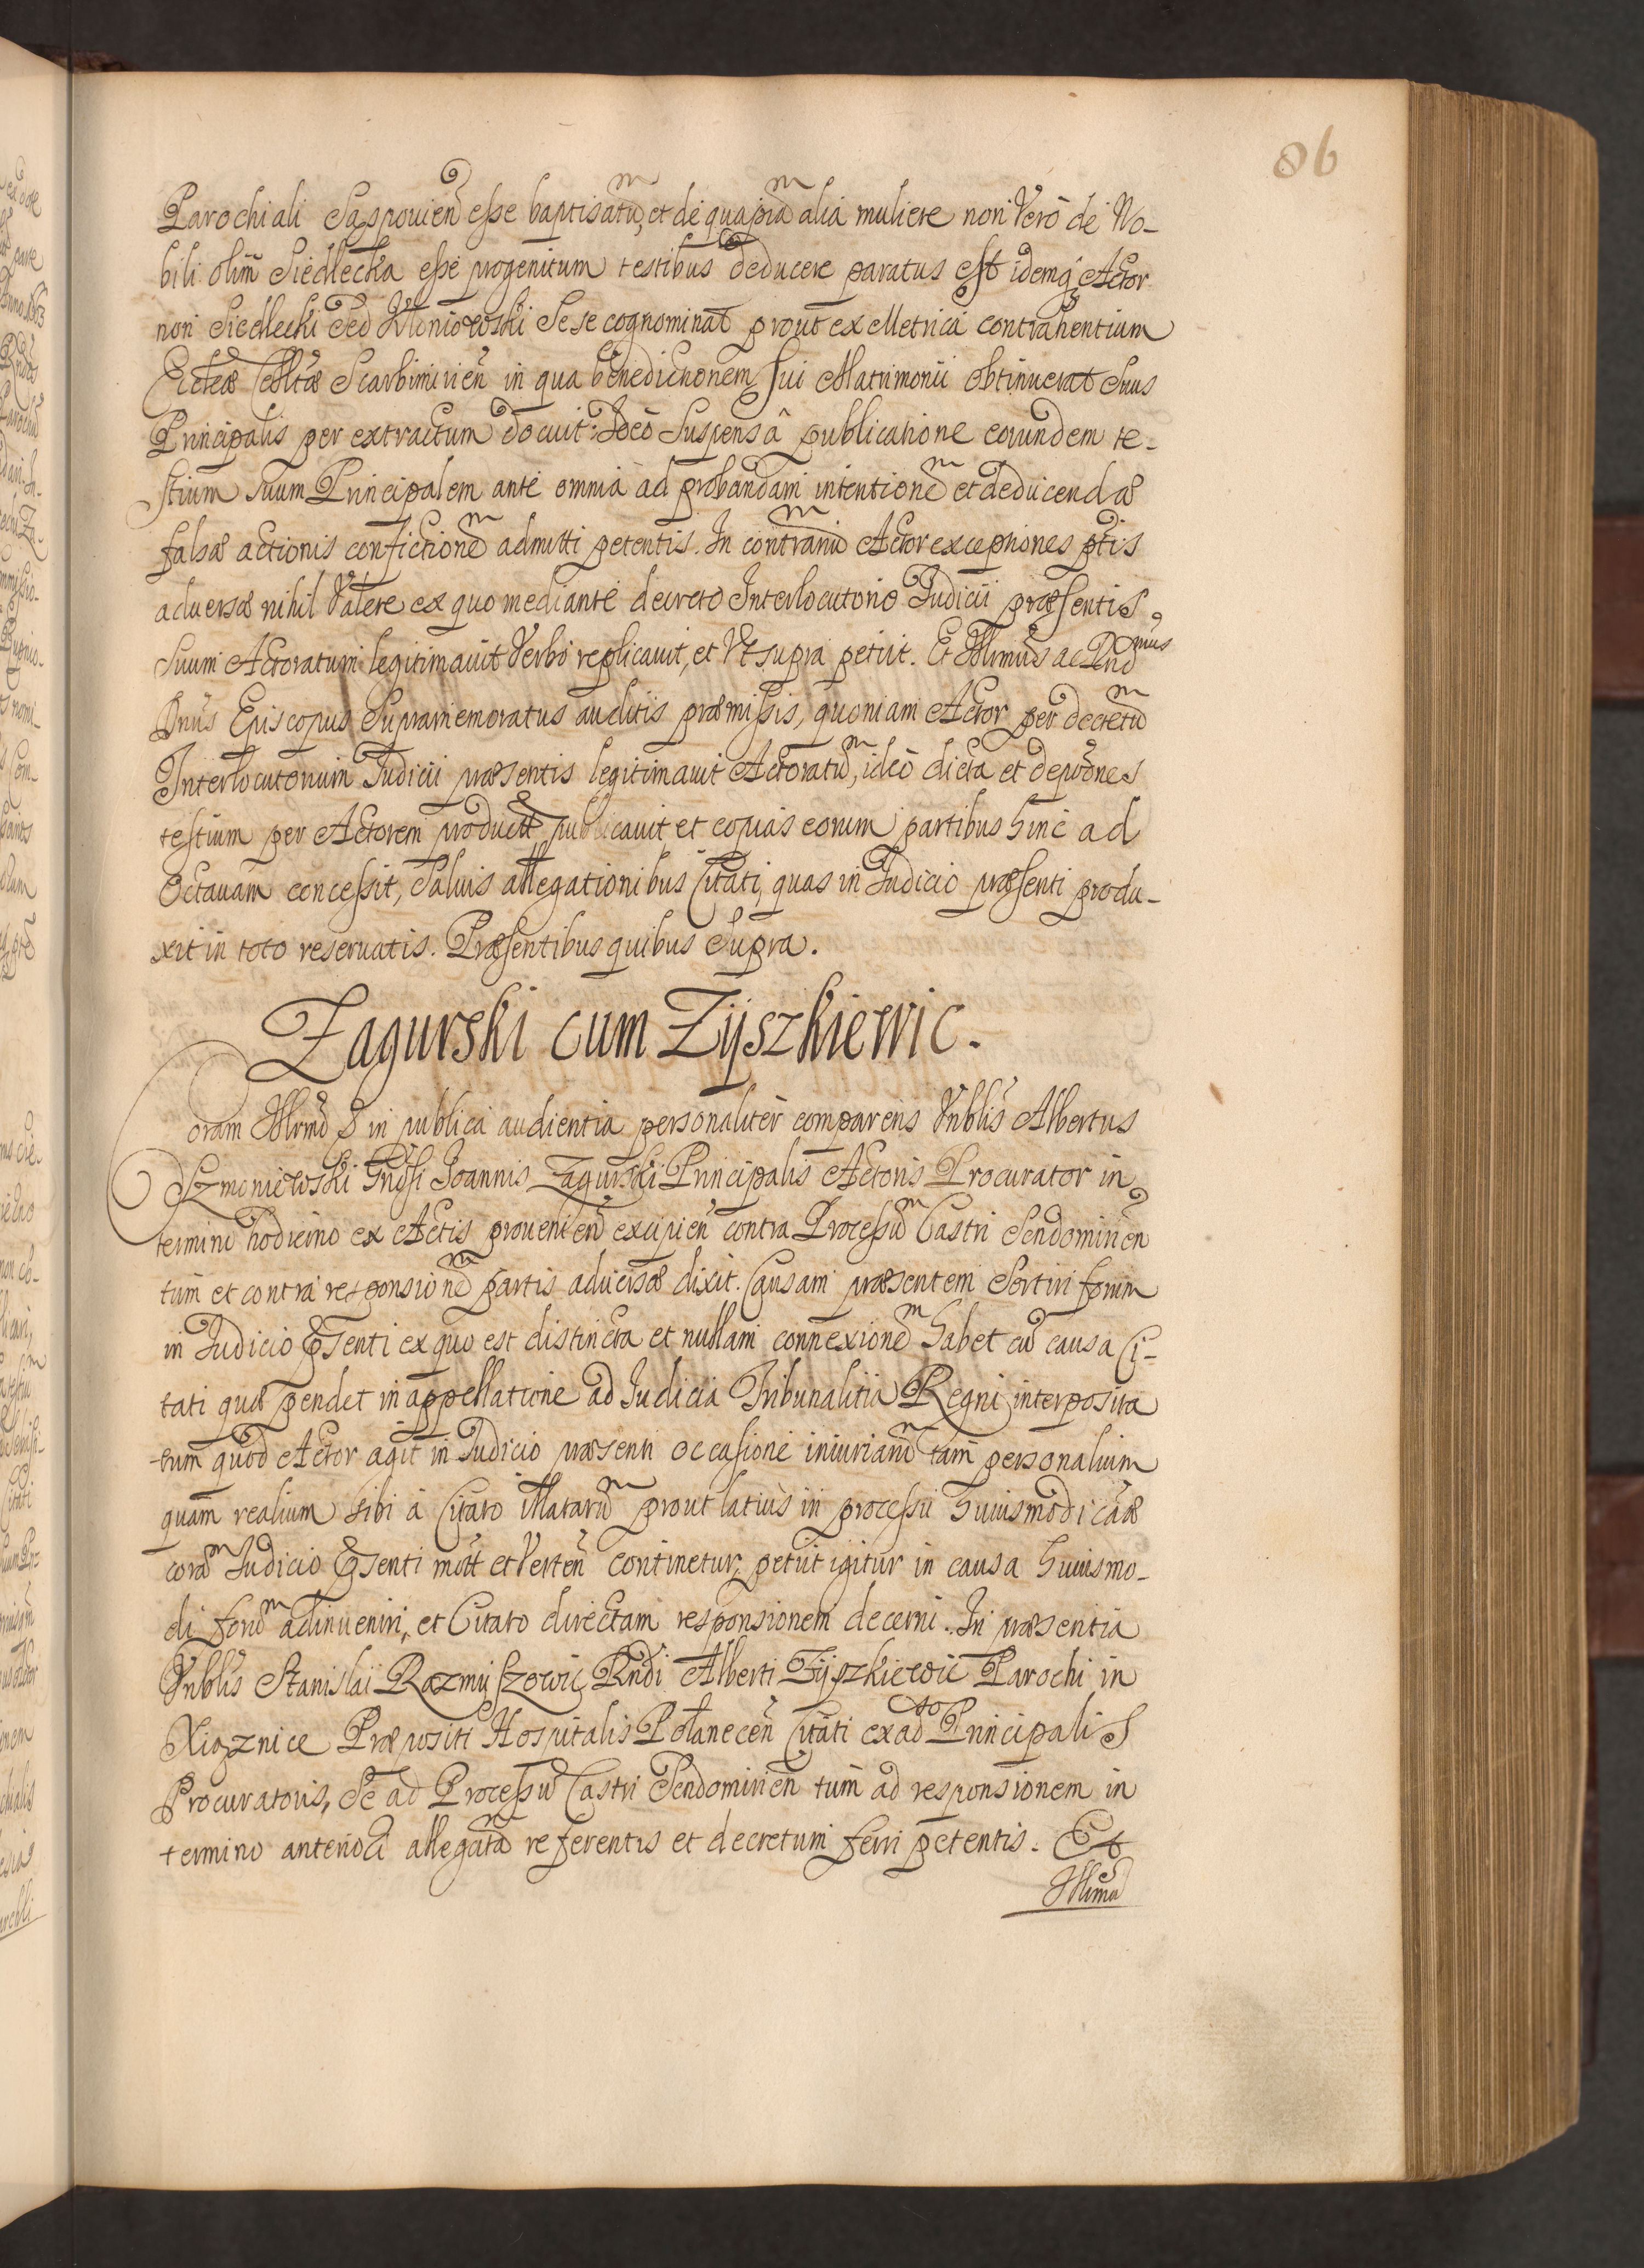 86
Parochiali Sąspouien̄ esse baptisatū, et de quapiā alia muliere non Verò de No-
bili olim Siedlecka esse progenitum testibus deducere paratus est idemq́ Actor
non Siedlecki Sed Kloniowski Sese cognominat prout ex Metrica contrahentium
Eccłæ Collłæ Scarbimirien̄ in qua benedictionem sui Matrimonii obtinuerat Suus
Principalis per extractum docuit. Ideò Suspensâ publicatione eorundem te-
stium Suum Principalem ante omnia ad probandam intentionē et deducendā
falsæ actionis confictionē admitti petentis. In contrariū Actor exceptiones ptis
aduersæ nihil Valere ex quo mediante decreto Interlocutorio Iudicii præsentis
Suum Actoratum legitimauit Verbo replicauit, et Vt supra petiit. Et Illrmūs ac Rnd̄mus
Dnūs Episcopus Supramemoratus auditis præmissis, quoniam Actor per decretū
Interlocutorium Iudicii præsentis legitimauit Actoratū, ideò dicta et depōnes
testium per Actorem product̄ publicauit et copias eorum partibus hinc ad
Octauam concessit, Saluis allegationibus Citati, quas in Iudicio præsenti produ-
xit in toto reseruatis. Præsentibus quibus Supra.
Zagurski cum Zÿszkiewic.
Coram Illrmō D in publica audientia personaliter comparens Vnblīs Albertus
Szmoniewski Gnōsi Ioannis Zagurski Principalis Actoris Procurator in
termino hodierno ex Actis prouenien̄ excipien̄ contra Processū Castri Sendomirien̄
tum et contra responsionē partis aduersæ dixit. Causam præsentem Sortiri forum
in Iudicio Psenti ex quo est distincta et nullam connexionē habet cū causa Ci-
tati quæ pendet in appellatione ad Iudicia Tribunalitia Regni interposita
tum quòd Actor agit in Iudicio præsenti occasione iniuriarū tam personalium
quam realium Sibi à Citato illatarū prout latius in processu huiusmodi cāæ
corā Iudicio Psenti mōt et Verten̄ continetur, petiit igitur in causa huiusmo-
di forū adinueniri, et Citato directam responsionem decerni. In præsentia
Vnblīs Stanislai Razmuszowic Rndi Alberti Zyszkiewic Parochi in
Xiąznice Præpositi Hospitalis Połanecen̄ Citati ex adto Principalis
Procuratoris, Se ad Processū Castri Sendomirien̄ tum ad responsionem in
termino anteriori allegatā referentis et decretum ferri petentis. Et
Illrmu